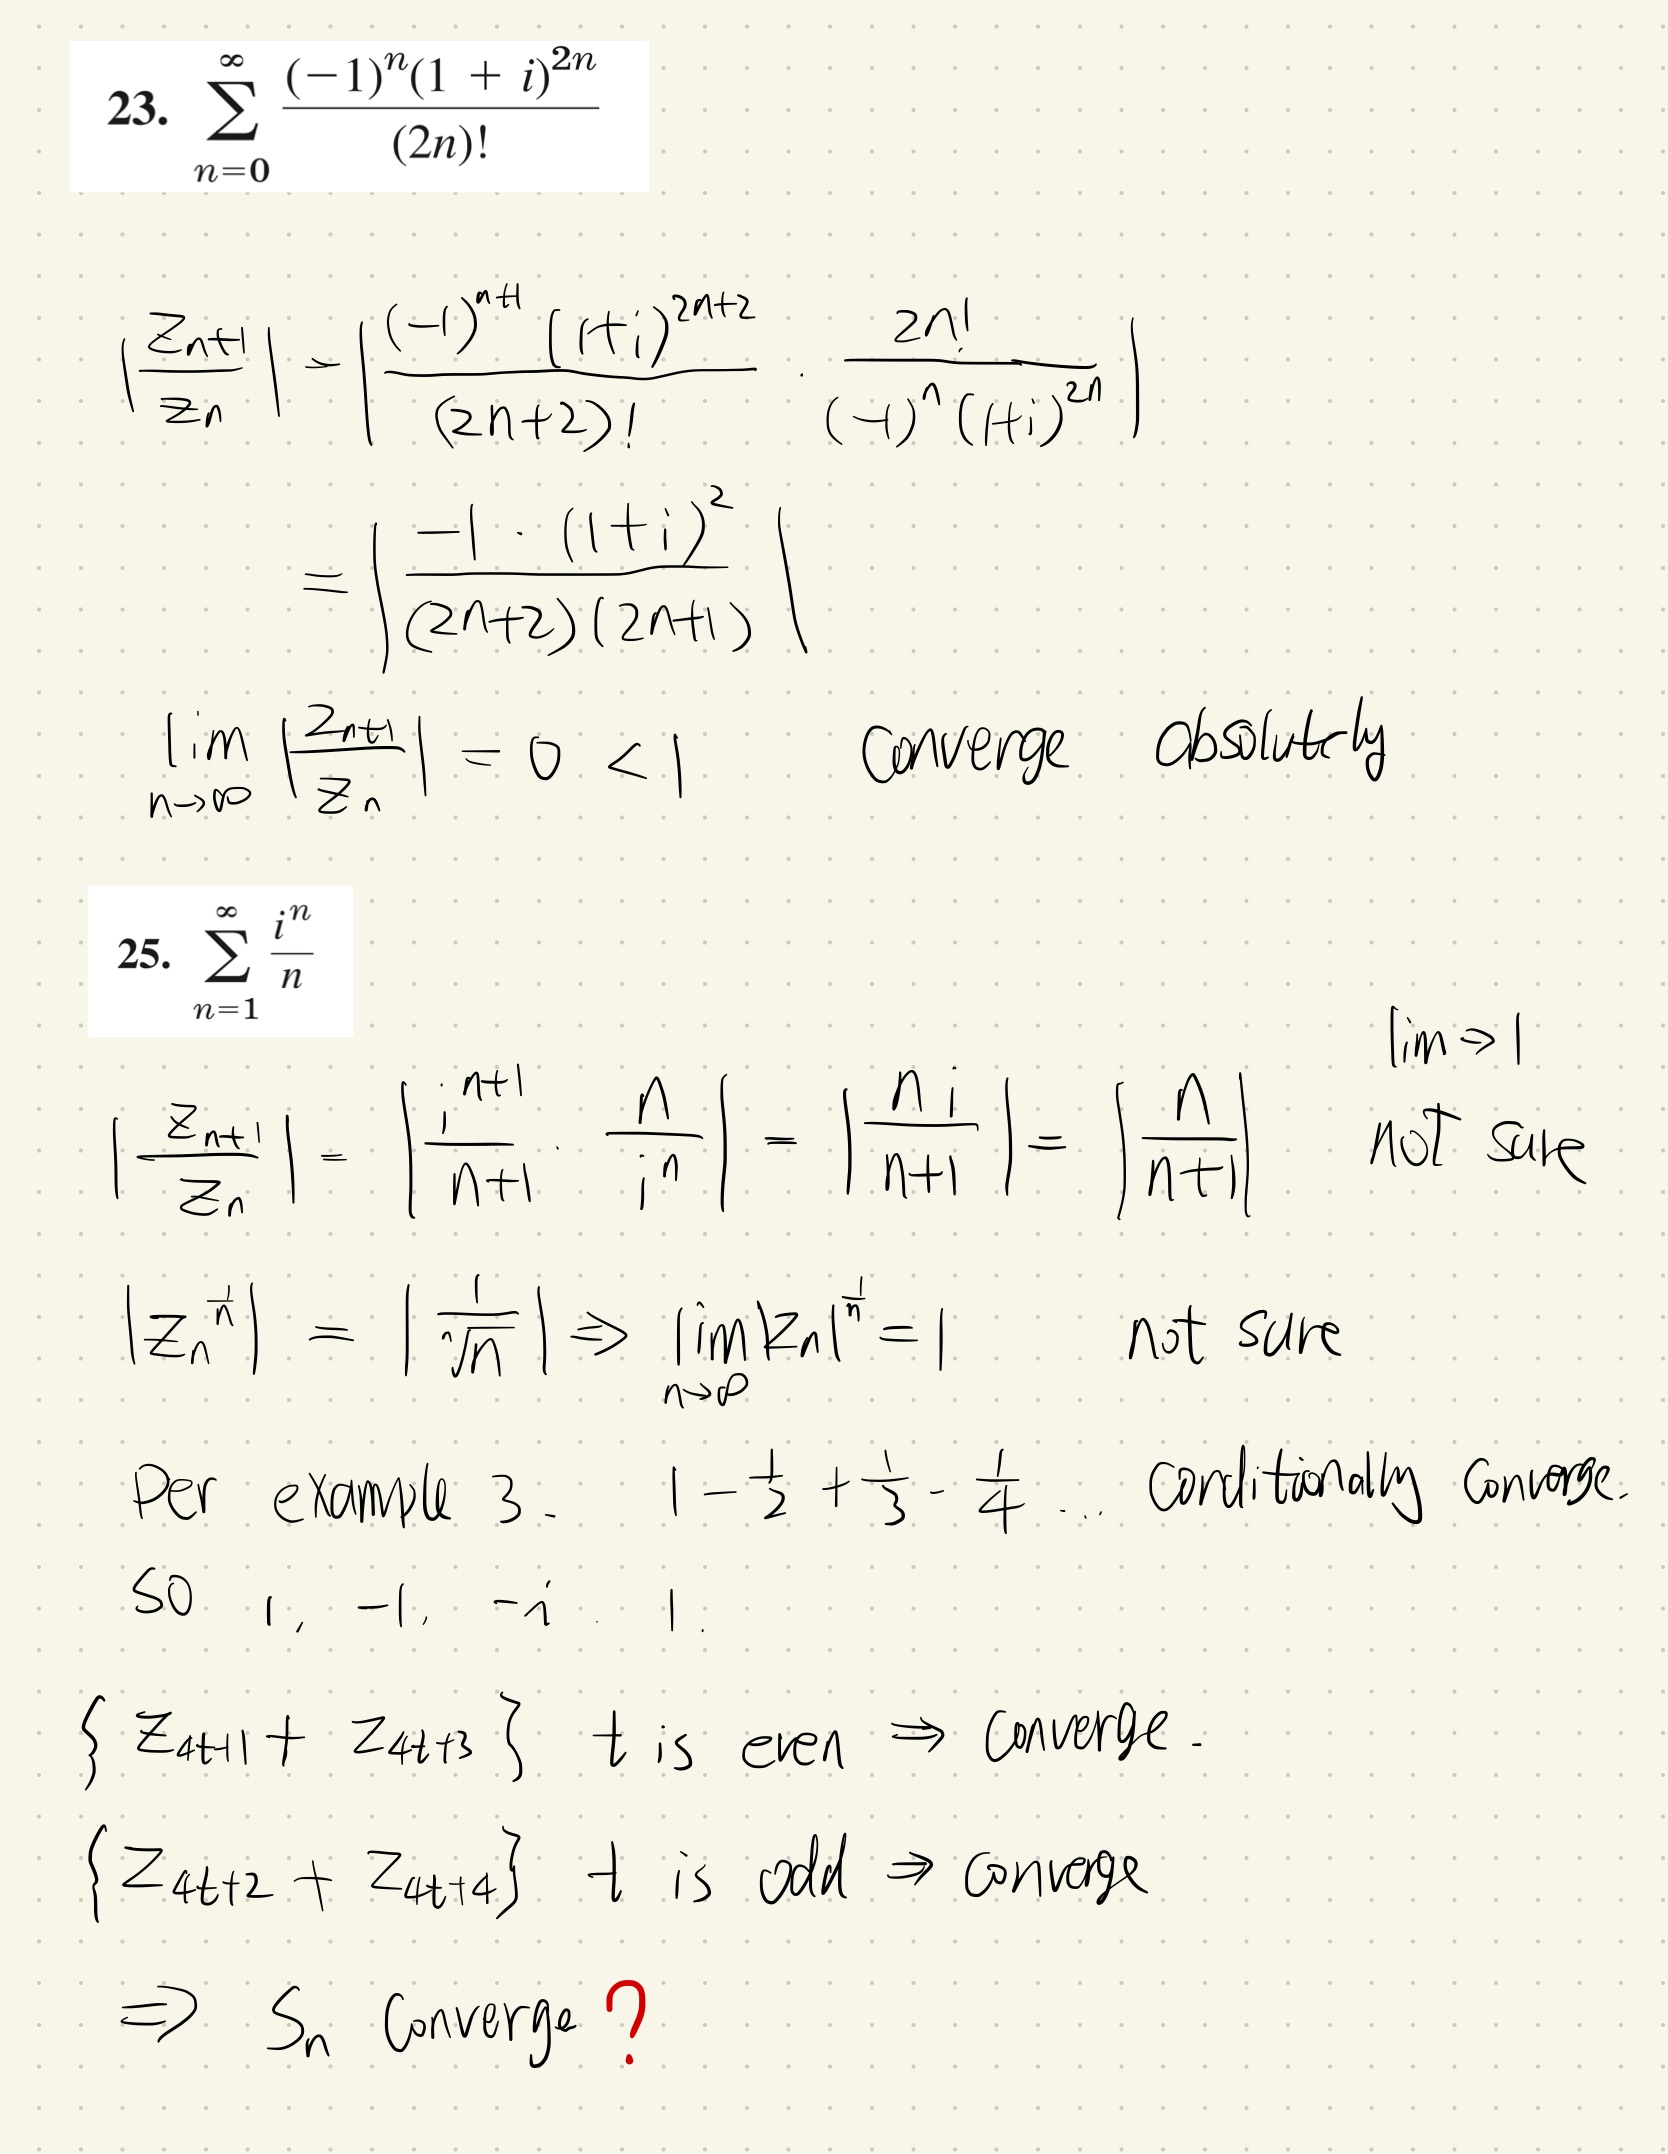 23. \sum_{n=0}^{\infty} \frac{(-1)^n(1 + i)^{2n}}{(2n)!}
|\frac{z_{n+1}}{z_n}| = |\frac{(-1)^{n+1} (1+i)^{2n+2}}{(2n+2)!} \cdot \frac{2n!}{(-1)^n (1+i)^{2n}}|
= |\frac{-1 \cdot (1+i)^2}{(2n+2)(2n+1)}|
\lim_{n→∞} |\frac{z_{n+1}}{z_n}| = 0 < 1 converge absolutely
25. \sum_{n=1}^{\infty} \frac{i^n}{n}
lim ⇒ 1
|\frac{z_{n+1}}{z_n}| = |\frac{i^{n+1}}{n+1} \cdot \frac{n}{i^n}| = |\frac{n i}{n+1}| = |\frac{n}{n+1}| not sure
|z_n^{\frac{1}{n}}| = |\frac{1}{\sqrt[n]{n}}| ⇒ \lim_{n→∞} |z_n|^{\frac{1}{n}} = 1 not sure
Per example 3. 1 - \frac{1}{2} + \frac{1}{3} - \frac{1}{4} ... conditionally converge.
so i, -1, -i. 1.
{ z_{4t+1} + z_{4t+3} } t is even ⇒ converge.
{ z_{4t+2} + z_{4t+4} } t is odd ⇒ converge
⇒ S_n converge ?